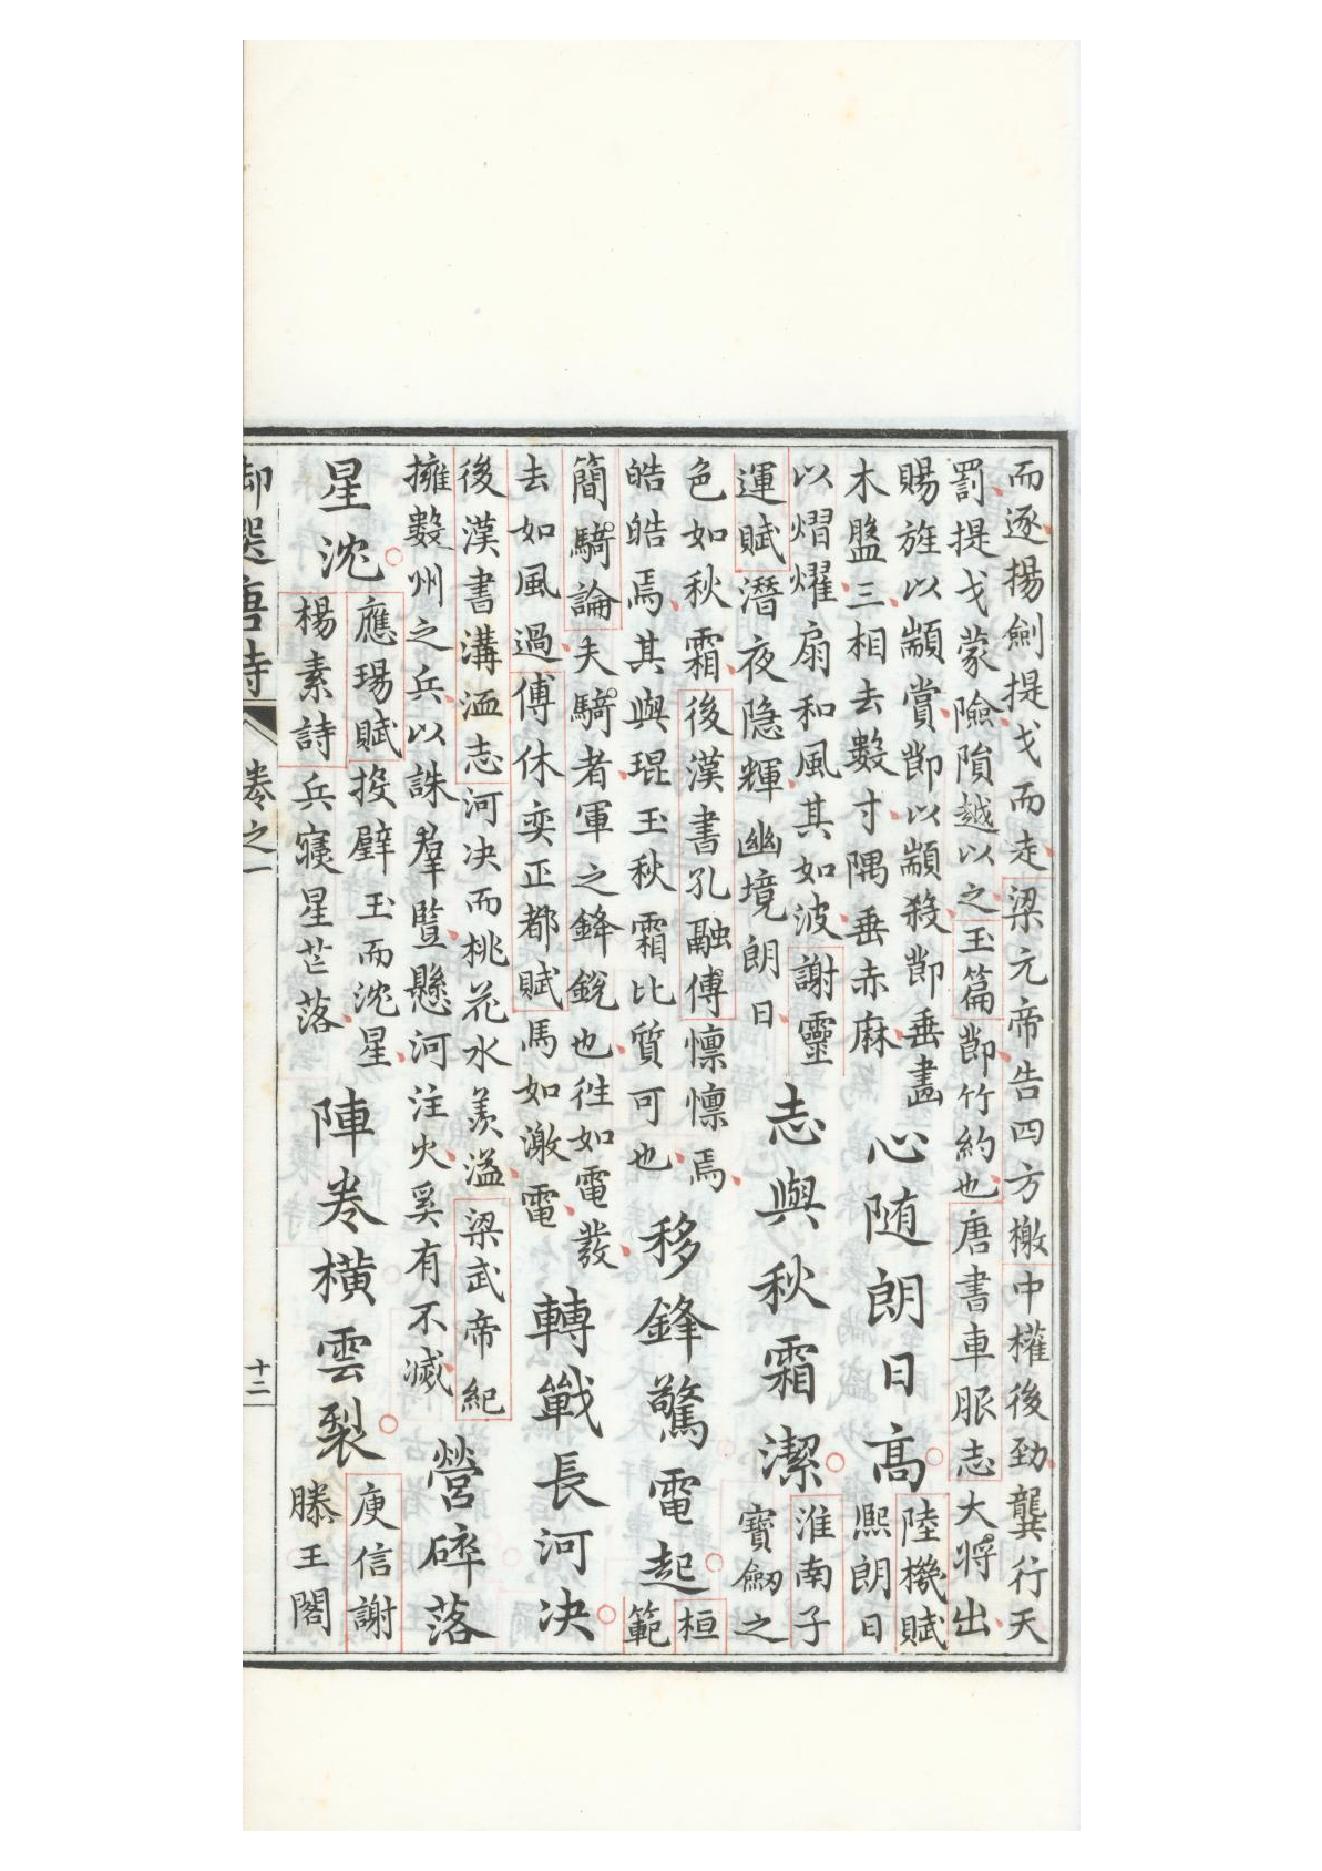 而逐揚劍提戈而走梁元帝告四方檄中權後勁龔行天
罰提戈蒙險隕越以之玉篇節竹約也唐書車服志大將出
賜旌以顓賞節以顓殺節垂畫
木盤三相去數寸隅垂赤麻
心隨朗日高
陸機賦
熙朗日
以熠燿扇和風其如波謝靈
運賦潛夜隱輝幽境朗日
志與秋霜潔
淮南子
寶劒之
色如秋霜後漢書孔融傳懍懍焉
皓皓焉其與琨玉秋霜比質可也
移鋒驚電起
桓
範
簡騎論夫騎者軍之鋒銳也往如電發
去如風過傅休奕正都賦馬如激電
轉戰長河決
後漢書溝洫志河決而桃花水羨溢梁武帝紀
擁數州之兵以誅羣豎懸河注火奚有不滅
營碎落
星沈
應瑒賦投壁玉而沈星
楊素詩兵寢星芒落
陣卷橫雲裂
庾信謝
滕王閣
御選唐詩
卷之一
十二